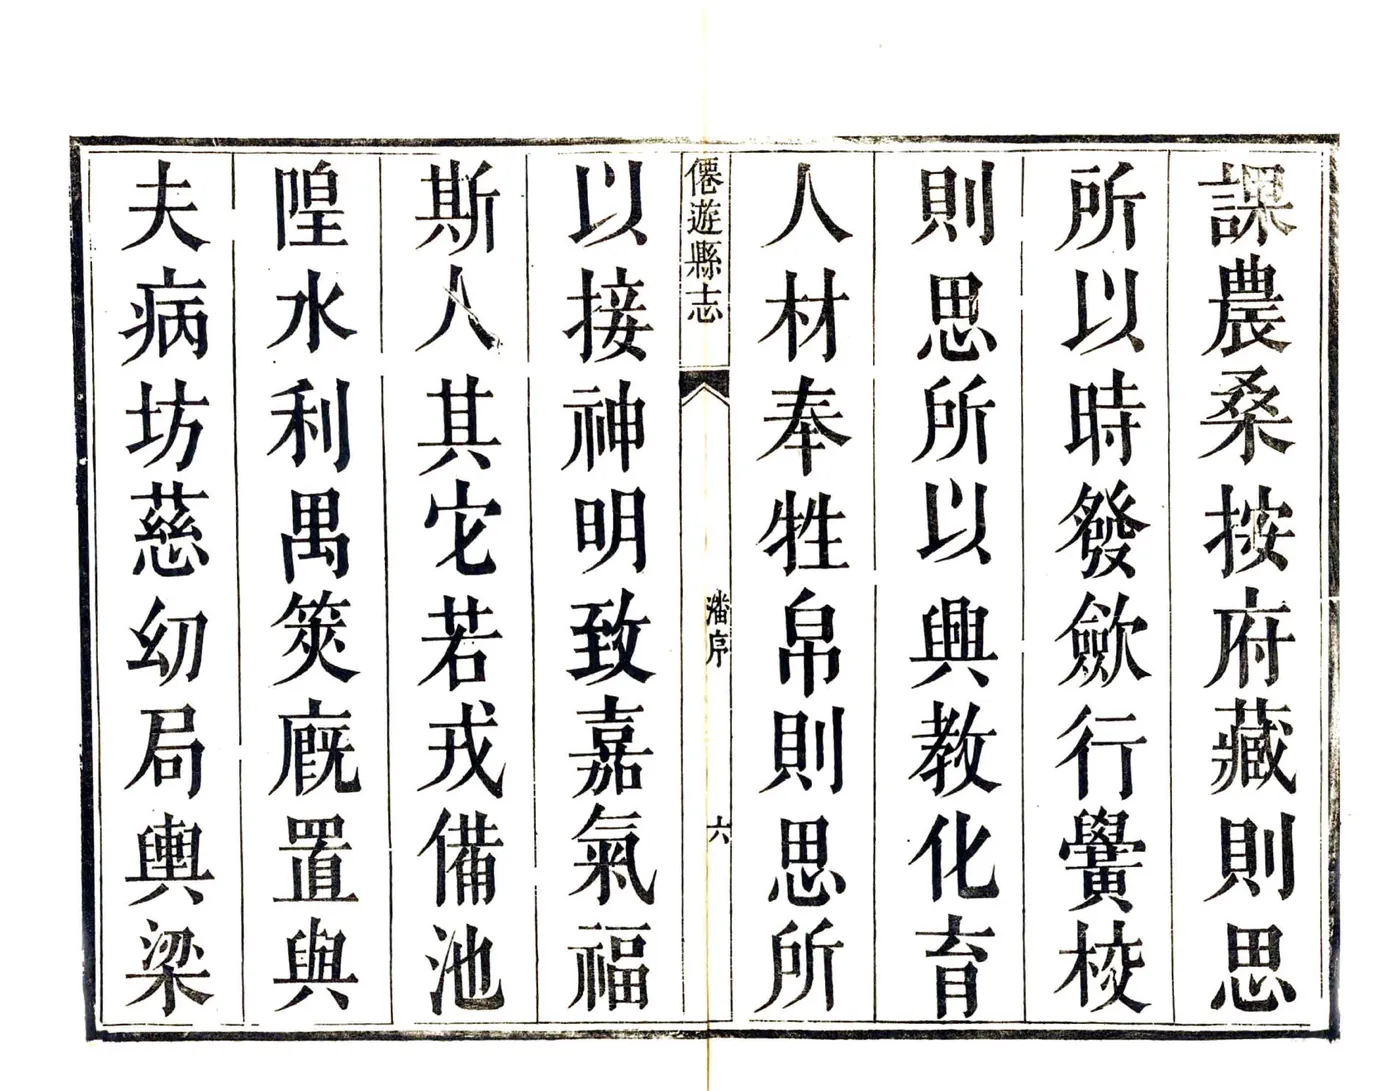 課農桑按府藏則思
所以時發歛行黌校
則思所以興教化育
人材奉牲帛則思所
僊遊縣志
潘序
六
以接神明致嘉氣福
斯人其它若戎備池
隍水利禺筴廐置與
夫病坊慈幼局輿梁